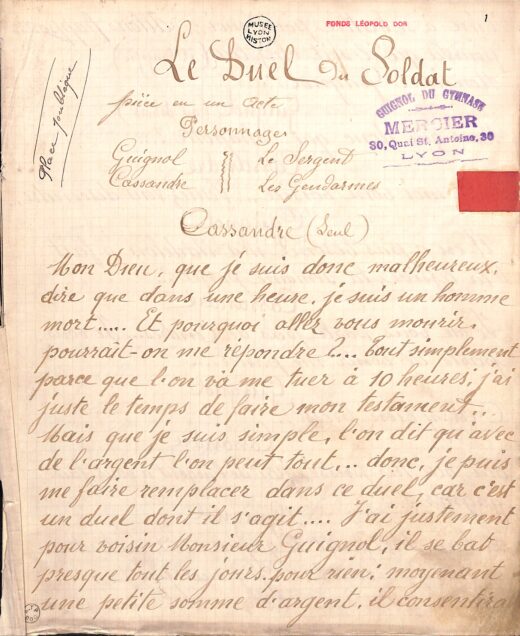 MUSÉE
LYON
HISTOR
FONDS LÉOPOLD DOR
1
Le Duel du Soldat
pièce en un acte
Place publique
GUIGNOL DU GYMNASE
MERCIER
30, Quai St. Antoine, 30
LYON
Personnages
Guignol Le Sergent
Cassandre Les Gendarmes
Cassandre (Seul)
Mon Dieu, que je suis donc malheureux,
dire que dans une heure, je suis un homme
mort..... Et pourquoi allez vous mourir,
pourrait-on me répondre ?... Tout simplement
parce que l'on và me tuer à 10 heures; j'ai
juste le temps de faire mon testament...
Mais que je suis simple, l'on dit qu'avec
de l'argent l'on peut tout,.. donc, je puis
me faire remplacer dans ce duel, car c'est
un duel dont il s'agit.... J'ai justement
pour voisin Monsieur Guignol, il se bat
presque tout les jours pour rien; moyenant
une petite somme d'argent, il consentira